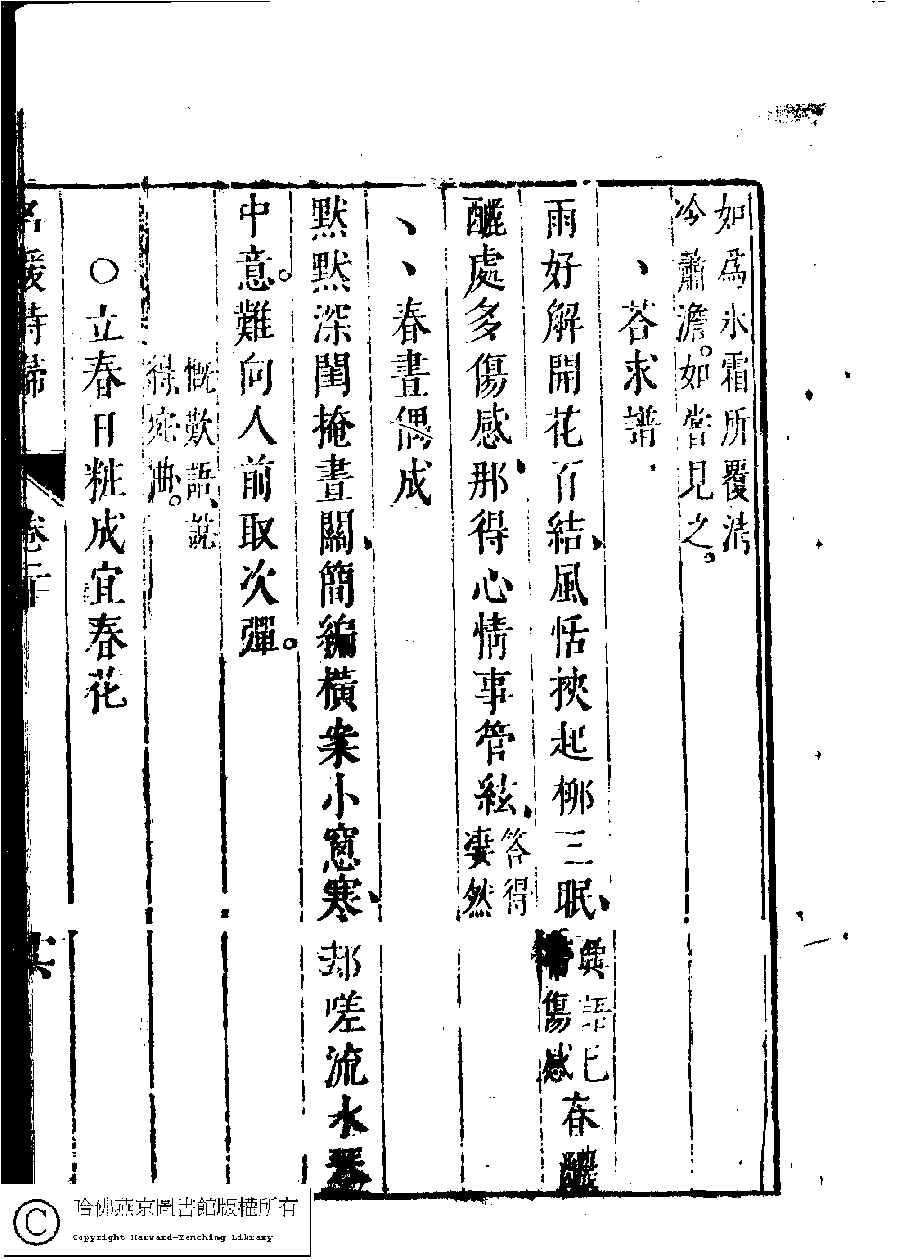 如為氷霜所覆清
冷蕭澹。如嘗見之。
荅求譜
雨好解開花百結、風恬挾起栁三眠、語已傷感在
醺處多傷感、那得心情事管絃、答得凄然
春晝偶成
默默深閨掩晝關、簡編橫案小窓寒、却嗟流水琴
中意。難向人前取次彈。
慨歎語、說
得宛曲。
○立春日粧成宜春花
名媛詩歸
卷二十
哈佛燕京圖書館版權所有
Copyright Harvard-Yenching Library